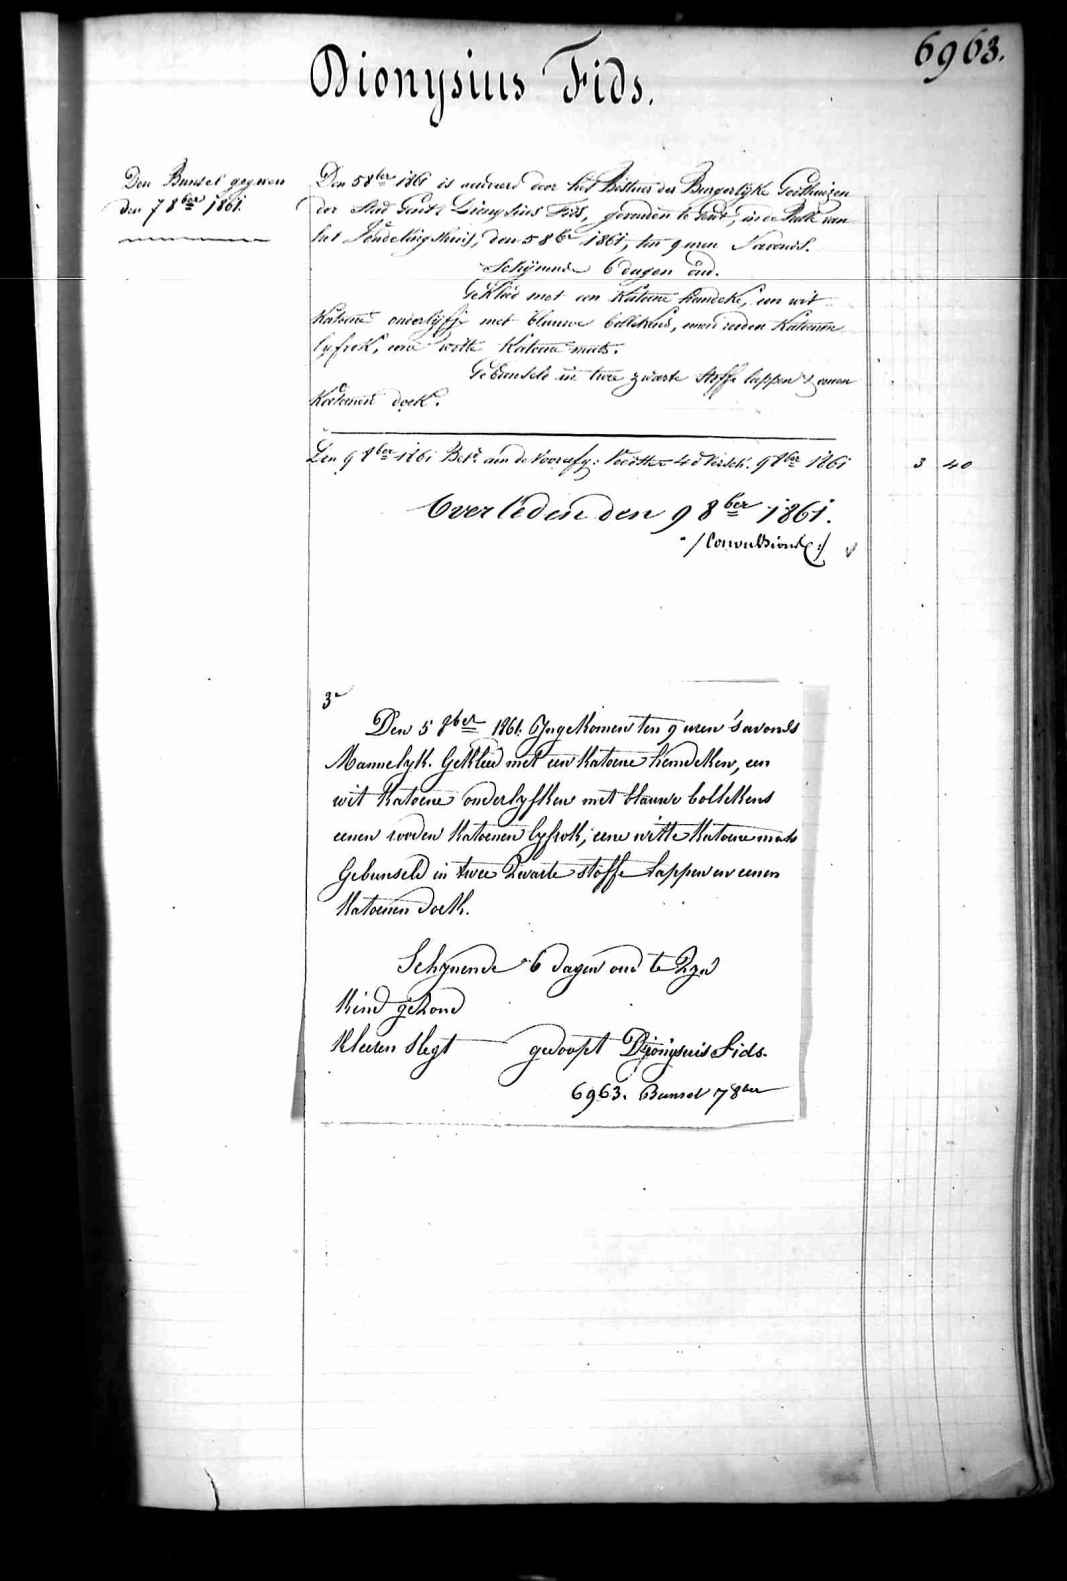 6963.
Dionysius Fids.
Den Bunsel gegeven
den 7 8ber 1861.
Den 5 8ber 1861 is aenveerd door het Bestuur der Burgerlyke Godshuizen
der Stad Gent, Dionysius Fids, gevonden te Gent, in de Rolle van
het Vondelingshuis, den 5 8ber 1861, ten 9 uren 's avonds.
Schynende 6 dagen oud.
Gekleed met een Katoene hemdeke, een wit
Katoene onderlyfje met blauwe bollekens, eenen rooden Katoenen
lyfrok, eene witte Katoene muts.
Gebunseld in twee zwarte stoffe lappen & eenen
Katoenen doek.
Den 9 8ber 1861 Bet. aen de 9 8ber 1861 3 40
Overleden den 9 8ber 1861.
/Convulsions/
3e
Den 5 8ber 1861. Ingekomen ten 9 uren 's avonds
Mannelyk. Gekleed met een Katoene hemdeken, een
wit Katoene onderlyfken met blauwe bollekens
eenen rooden Katoenen lyfrok, eene witte Katoene muts
Gebunseld in twee Zwarte stoffe lappen en eenen
Katoenen doek.
Schynende 6 dagen oud te Zyn
Kind gezond
Kleeren slegt gedoopt Dyonysius Fids.
6963. Bunsel 7 8ber